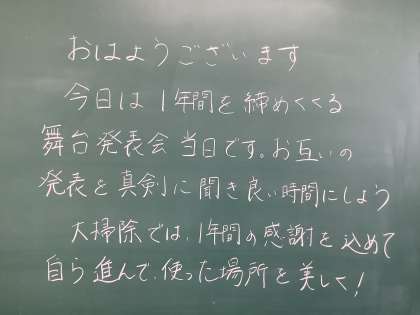 おはようございます
今日は1年間を締めくくる
舞台発表会当日です。お互いの
発表を真剣に聞き良い時間にしよう
大掃除では、1年間の感謝を込めて
自ら進んで、使った場所を美しく!